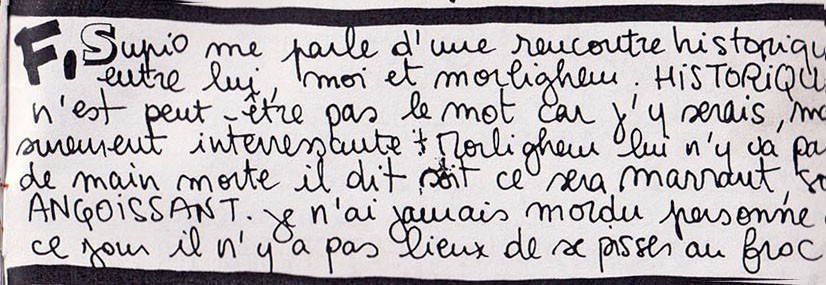 F. Supio me parle d'une rencontre historiqu
entre lui, moi et morlighem. HISTORiQU
n'est peut-être pas le mot car j'y serais, ma
surement interressante ! Morlighem lui n'y va pa
de main morte il dit soit ce sera marrant, so
ANGOISSANT. je n'ai jamais mordu personne
ce jour il n'y a pas lieux de se pisser au froc